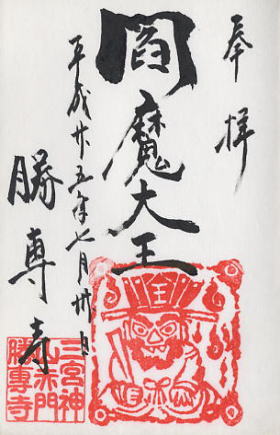 奉拝
閻魔大王
平成廿五年七月卅日
勝専寺
三宮神
山赤門
勝專寺